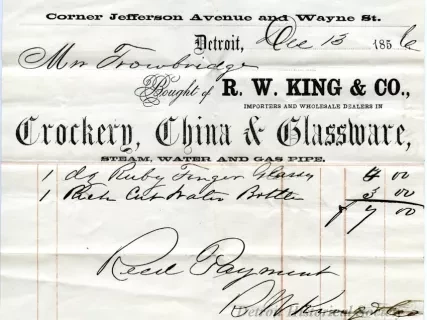 Corner Jefferson Avenue and Wayne St.
Detroit, Dec 13 1856
Mrs Trowbridge
Bought of R. W. KING & CO.,
IMPORTERS AND WHOLESALE DEALERS IN
Crockery, China & Glassware,
STEAM, WATER AND GAS PIPE.
1 dz Ruby Finger Glasses 4 00
1 Rich Cut Water Bottle 3 00
7 00
Recd Payment
R W King & Co